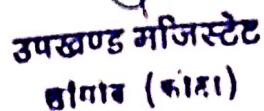 उपखण्ड मजिस्टेट
सांगोद (कोटा)